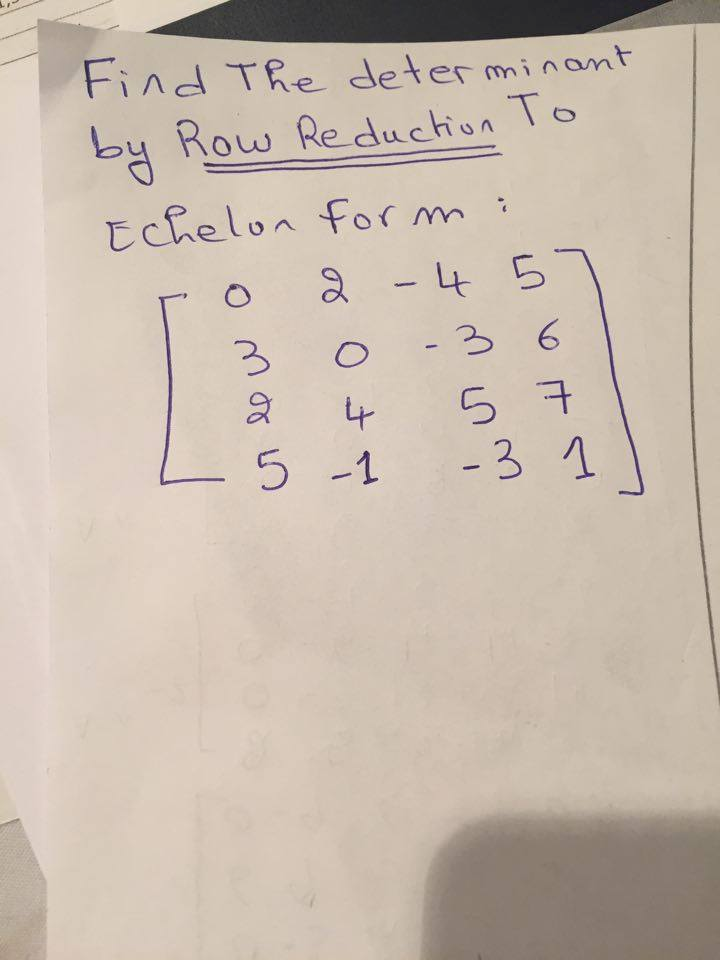 Find The determinant
by Row Reduction To
Echelon form :
0 2 -4 5
3 0 -3 6
2 4 5 7
5 -1 -3 1